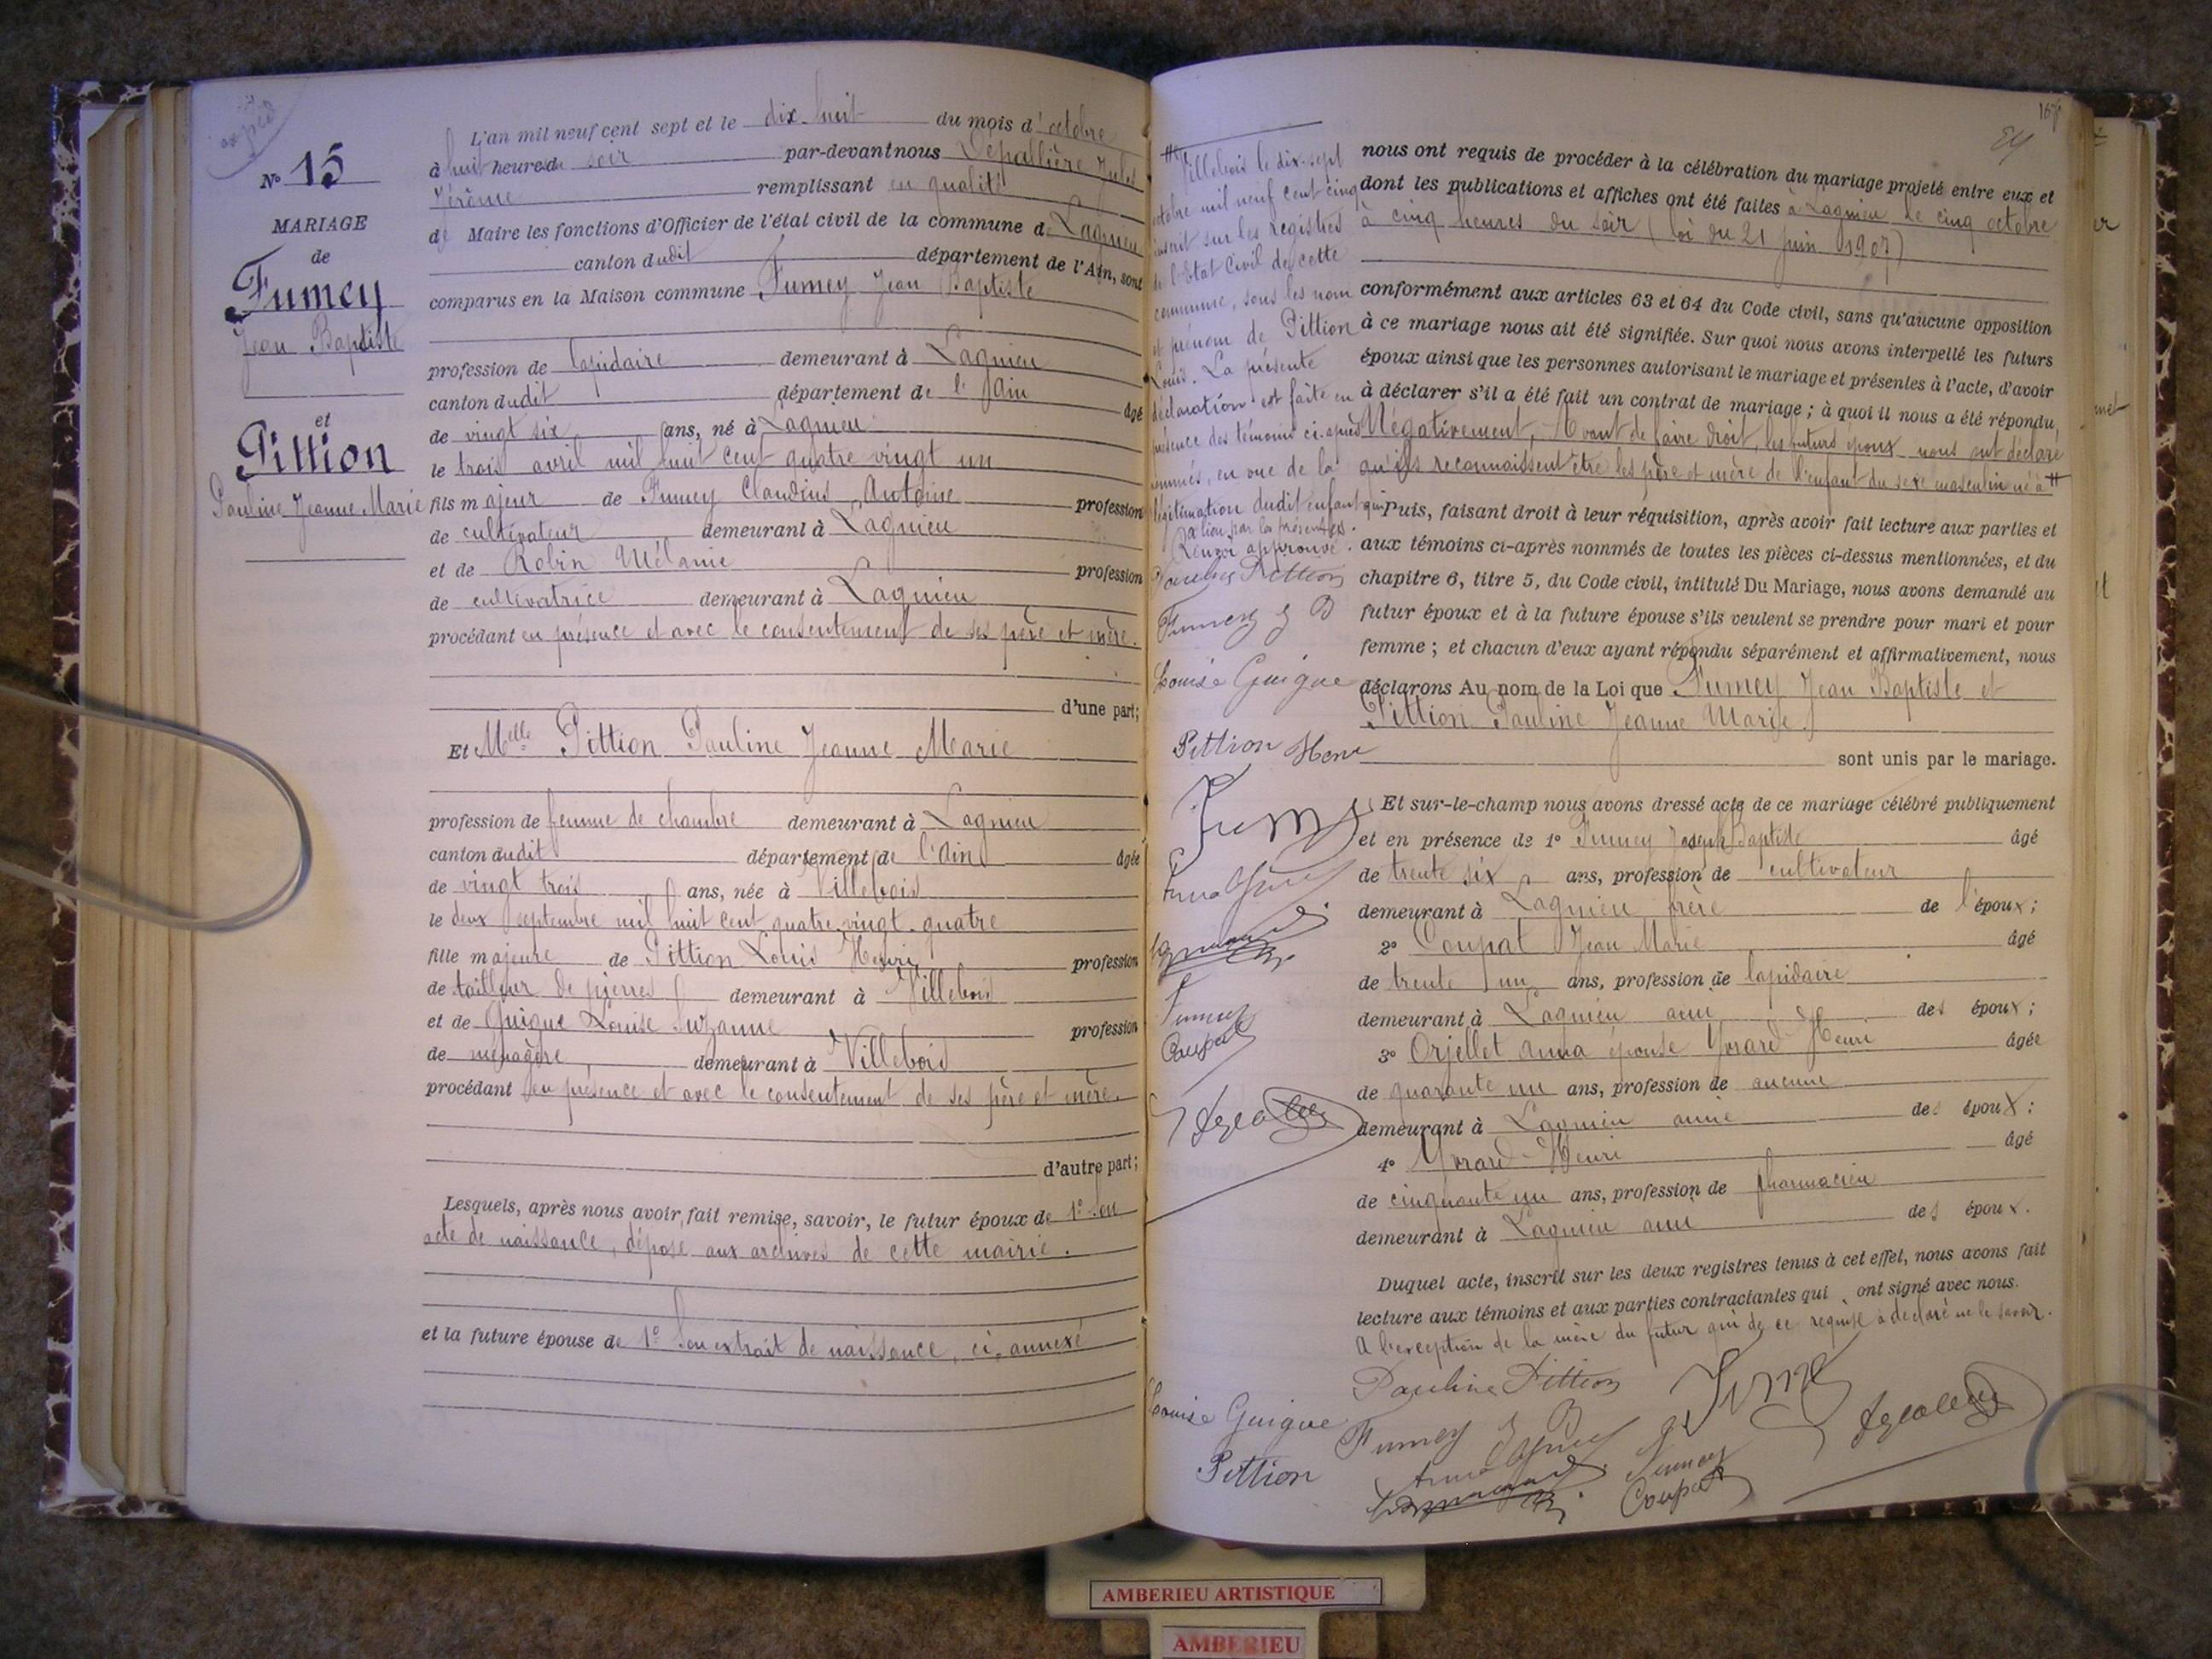 expédié
N° 15
MARIAGE
de
Fumey
Jean Baptiste
et
Pittion
Pauline Jeanne Marie
L'an mil neuf cent sept et le dix-huit du mois d'octobre
à huit heures du soir par-devant nous Depallière Jules
Jérôme remplissant en qualité
de Maire les fonctions d'Officier de l'état civil de la commune de Lagnieu
canton dudit département de l'Ain, sont
comparus en la Maison commune Fumey Jean Baptiste
profession de lapidaire demeurant à Lagnieu
canton dudit département de l'Ain âgé
de vingt six ans, né à Lagnieu
le trois avril mil huit cent quatre vingt un
fils majeur de Fumey Claudius Antoine profession
de cultivateur demeurant à Lagnieu
et de Robin Mélanie profession
de cultivatrice demeurant à Lagnieu
procédant en présence et avec le consentement de ses père et mère.
d'une part;
Et Melle Pittion Pauline Jeanne Marie
profession de femme de chambre demeurant à Lagnieu
canton dudit département de l'Ain âgée
de vingt trois ans, née à Villebois
le deux septembre mil huit cent quatre-vingt-quatre
fille majeure de Pittion Louis Henri profession
de tailleur de pierres demeurant à Villebois
et de Guigue Louise Suzanne profession
de ménagère demeurant à Villebois
procédant en présence et avec le consentement de ses père et mère.
d'autre part;
Lesquels, après nous avoir fait remise, savoir, le futur époux de 1° son
acte de naissance, déposé aux archives de cette mairie.
et la future épouse de 1° Son extrait de naissance, ci-annexé
Villebois le dix-sept
octobre mil neuf cent cinq
inscrit sur les registres
de l'Etat Civil de cette
commune, sous les nom
et prénom de Pittion
Louis. La présente
déclaration est faite en
présence des témoins ci-après
nommés, en vue de la
légitimation dudit enfant qui
a lieu par les présentes.
Renvoi approuvé.
Pauline Pittion
Fumey J B
Louise Guigue
Pittion Henri
Fumey
Fumey
Coupat
nous ont requis de procéder à la célébration du mariage projeté entre eux et
dont les publications et affiches ont été faites à Lagnieu le cinq octobre
à cinq heures du soir (loi du 21 juin 1907)
conformément aux articles 63 et 64 du Code civil, sans qu'aucune opposition
à ce mariage nous ait été signifiée. Sur quoi nous avons interpellé les futurs
époux ainsi que les personnes autorisant le mariage et présentes à l'acte, d'avoir
à déclarer s'il a été fait un contrat de mariage; à quoi il nous a été répondu,
Négativement, Avant de faire droit, les futurs époux nous ont déclaré
qu'ils reconnaissent être les père et mère de l'enfant du sexe masculin né à
Puis, faisant droit à leur réquisition, après avoir fait lecture aux parties et
aux témoins ci-après nommés de toutes les pièces ci-dessus mentionnées, et du
chapitre 6, titre 5, du Code civil, intitulé Du Mariage, nous avons demandé au
futur époux et à la future épouse s'ils veulent se prendre pour mari et pour
femme; et chacun d'eux ayant répondu séparément et affirmativement, nous
déclarons Au nom de la Loi que Fumey Jean Baptiste et
Pittion Pauline Jeanne Marie
sont unis par le mariage.
Et sur-le-champ nous avons dressé acte de ce mariage célébré publiquement
et en présence de 1° Fumey Joseph Baptiste âgé
de trente six ans, profession de cultivateur
demeurant à Lagnieu frère de l'époux;
2° Coupat Jean Marie âgé
de trente un ans, profession de lapidaire
demeurant à Lagnieu ami des époux;
3° Orjollet Anna épouse Yvrard Henri âgée
de quarante un ans, profession de aucune
demeurant à Lagnieu amie des époux;
4° Yvrard Henri âgé
de cinquante un ans, profession de pharmacien
demeurant à Lagnieu ami des époux.
Duquel acte, inscrit sur les deux registres tenus à cet effet, nous avons fait
lecture aux témoins et aux parties contractantes qui ont signé avec nous.
A l'exception de la mère du futur qui de ce requise a déclaré ne le savoir.
Pauline Pittion
Louise Guigue
Fumey J B
Pittion
Fumey
Coupat
AMBERIEU ARTISTIQUE
AMBERIEU